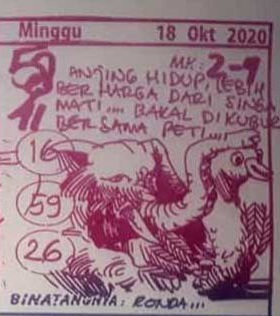 Minggu 18 Okt 2020
MK: 2-9
59 ANJING HIDUP, LEBIH
BERHARGA DARI SINGA
MATI.... BAKAL DIKUBUR
11 BERSAMA PETI....!
16
59
26
BINATANGNYA: RONDA...